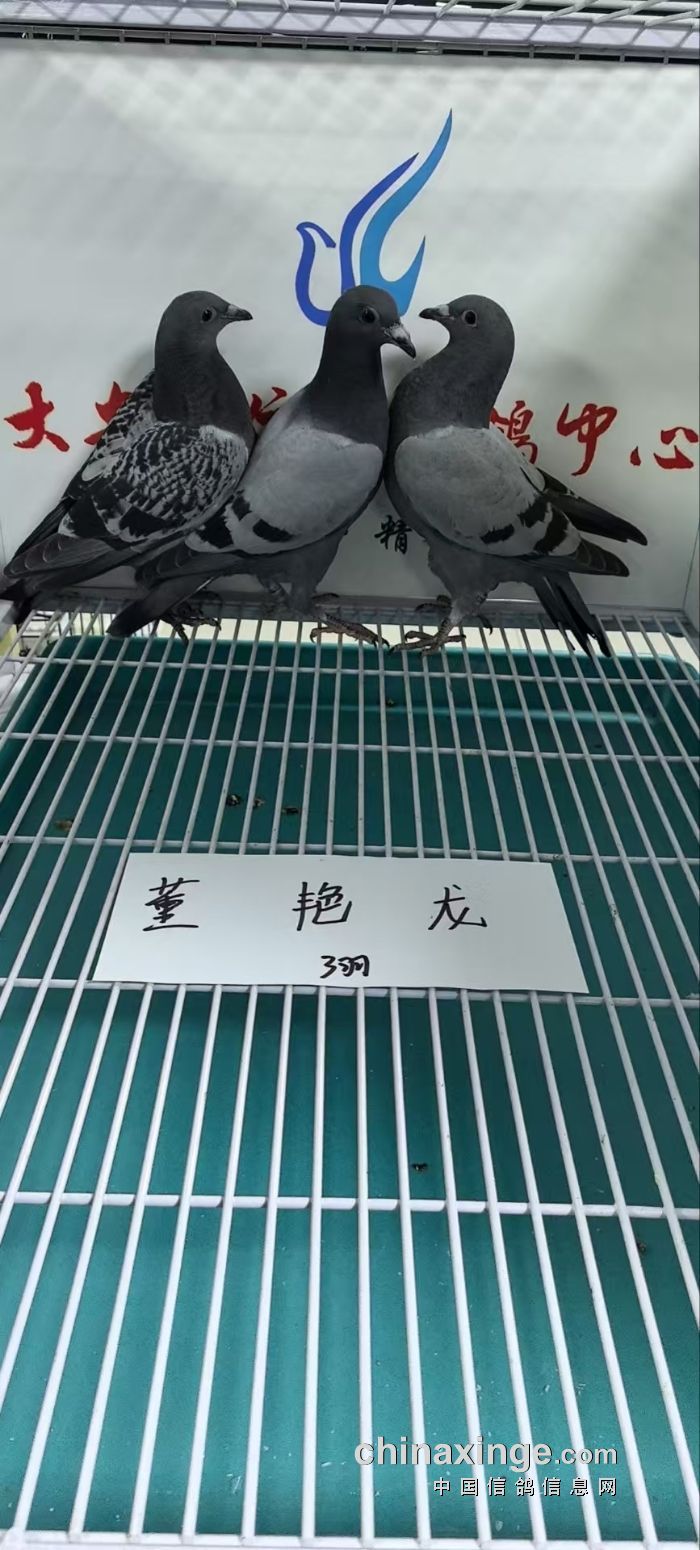 大 鸽中心
精
董 艳 龙
3羽
chinaxinge.com
中国信鸽信息网